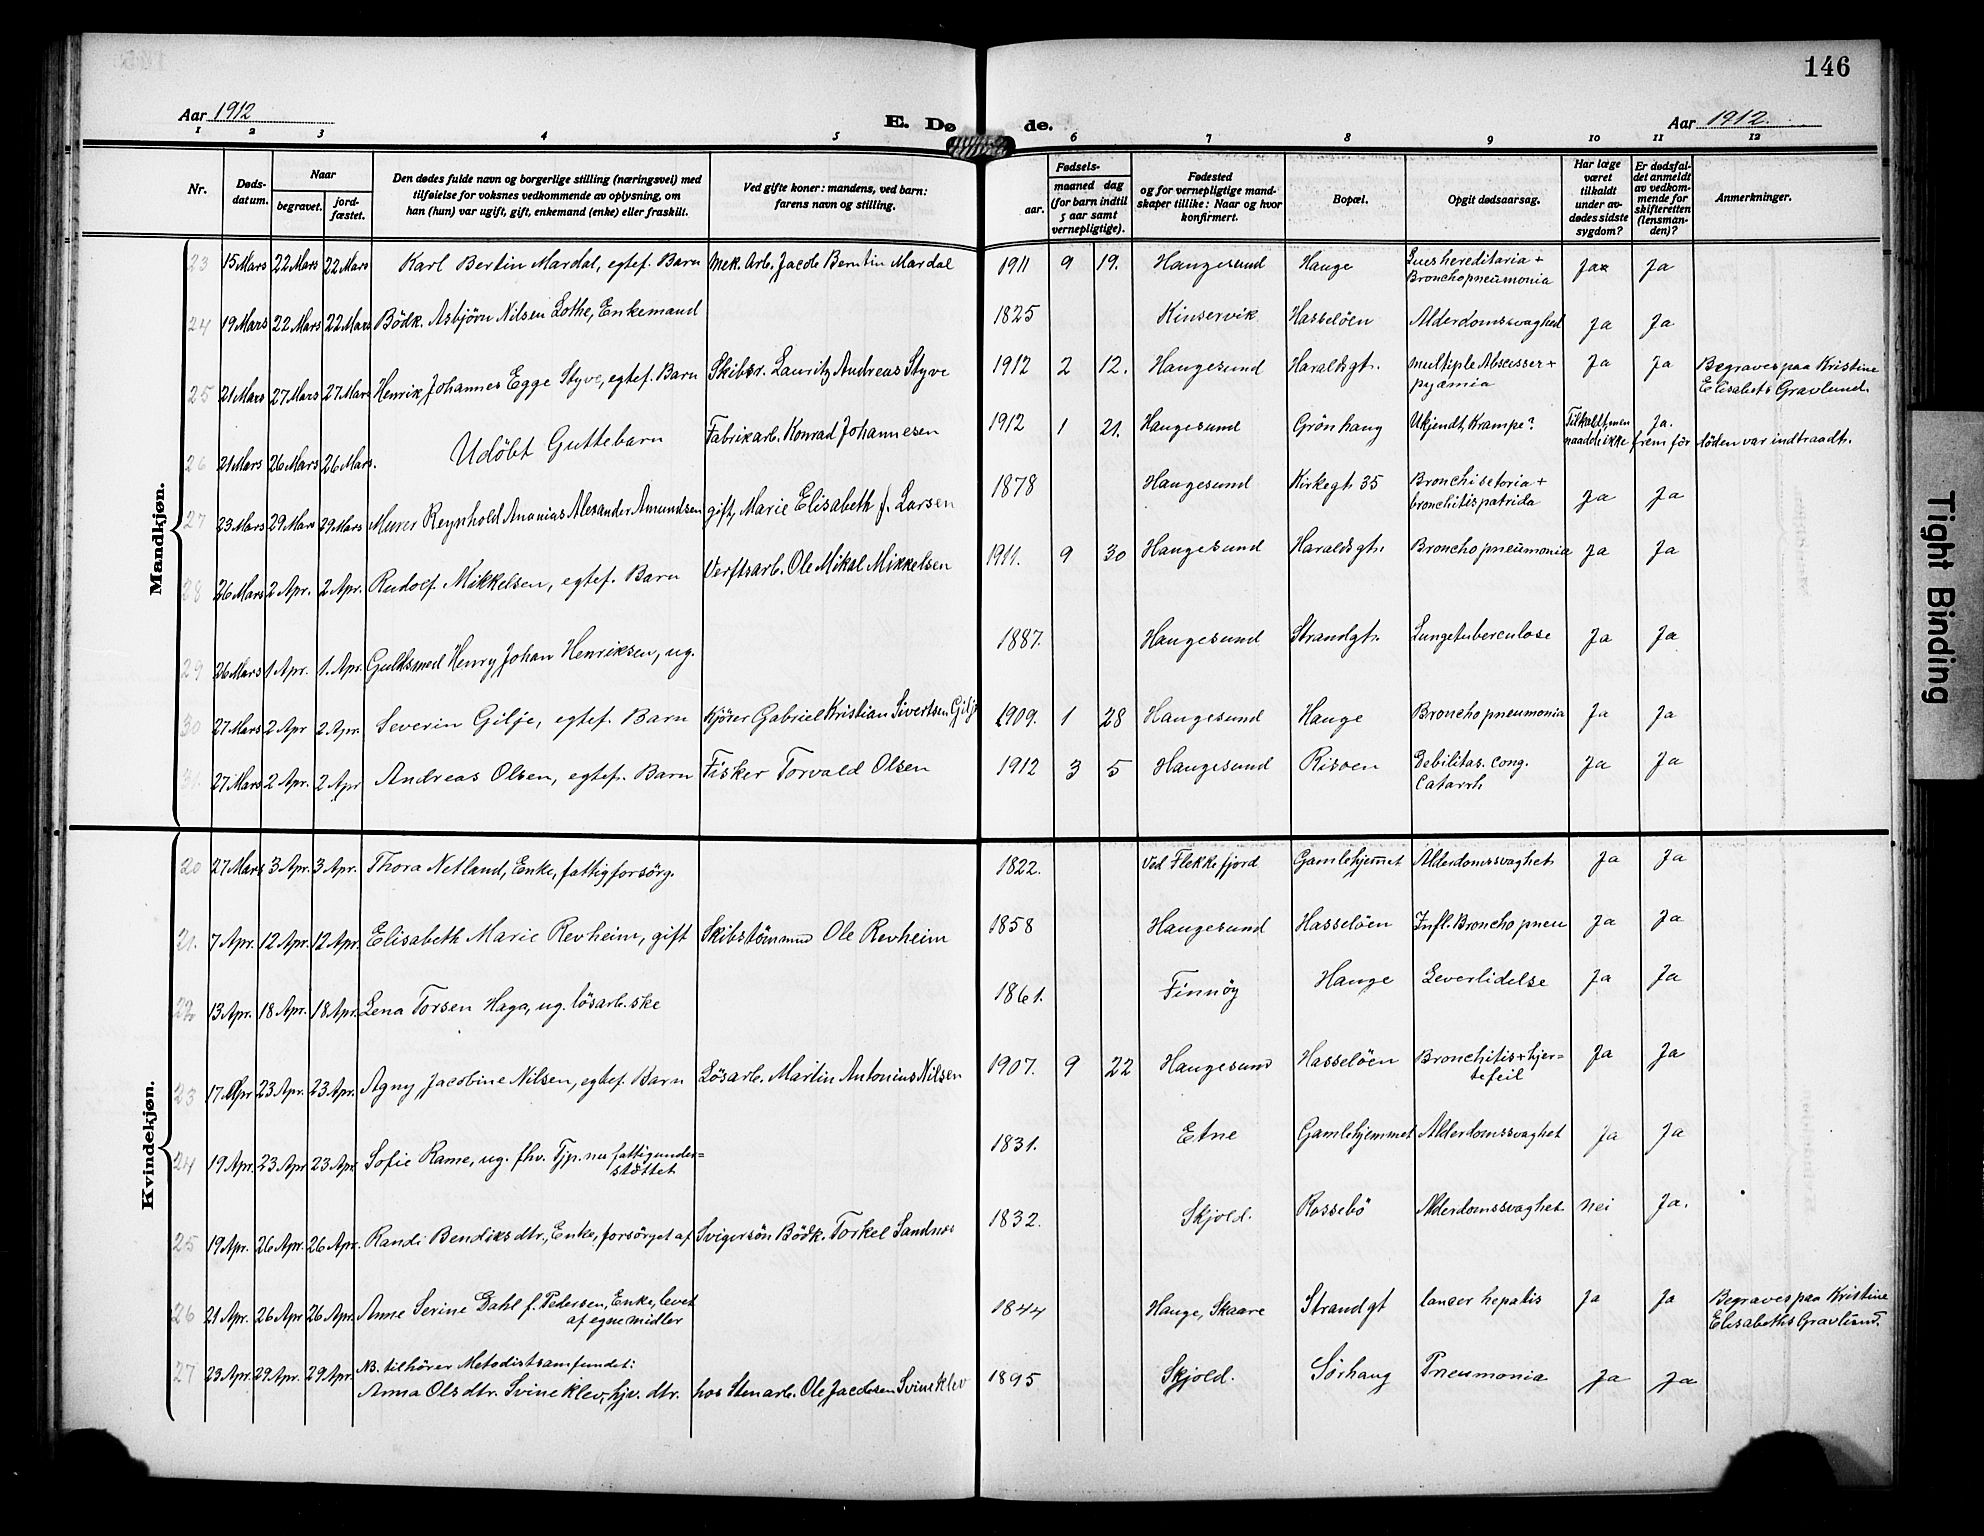 146
Aar 1912
E. Dø de.
Aar 1912.
1 2 3 4 5 6 7 8 9 10 11 12
Nr.
Døds-
datum.
Naar
begravet.
jord-
fæstet.
Den dødes fulde navn og borgerlige stilling (næringsvei) med
tilføielse for voksnes vedkommende av oplysning, om
han (hun) var ugift, gift, enkemand (enke) eller fraskilt.
Ved gifte koner: mandens, ved barn:
farens navn og stilling.
Fødsels-
aar.
maaned dag
(for barn indtil
5 aar samt
vernepligtige).
Fødested
og for vernepligtige mand-
skaper tillike: Naar og hvor
konfirmert.
Bopæl.
Opgit dødsaarsag.
Har læge
været
tilkaldt
under av-
dødes sidste
sygdom?
Er dødsfal-
det anmeldt
av vedkom-
mende for
skifteretten
(lensman-
den)?
Anmerkninger.
Mandkjøn.
23 15 Mars 22 Mars 22 Mars Karl Bertin Mardal, egtef. Barn Mek. Arb. Jacob Berntin Mardal 1911 9 19. Haugesund Hauge Lues hereditaria + Ja Ja
Bronchopneumonia
24 19 Mars 22 Mars 22 Mars Bödk. Asbjörn Nilsen Lothe, Enkemand 1825 Kinservik Hasselöen Alderdomssvaghed Ja Ja
25 21 Mars 27 Mars 27 Mars Henrik Johannes Egge Styve, egtef. Barn Skibsr. Lauritz Andreas Styve 1912 2 12. Haugesund Haraldsgt. multiple Abscesser + Ja Ja Begraves paa Kristine
pyæmia Elisabets Gravlund.
26 21 Mars 26 Mars 26 Mars. Udöbt Guttebarn Fabrikarb. Konrad Johannesen 1912 1 21. Haugesund Grönhaug Ukjendt, Krampe? Tilkaldt, men Ja.
naadde ikke frem för döden var indtraadt.
27 23 Mars 29 Mars 29 Mars Murer Reynhold Ananias Alexander Amundsen gift, Marie Elisabeth f. Larsen 1878 Haugesund Kirkegt. 35 Ja Ja
28 26 Mars 2 Apr. 2 Apr. Rudolf Mikkelsen, egtef. Barn Verftsarb. Ole Mikal Mikkelsen 1911. 9 30 Haugesund Haraldsgt. Bronchopneumonia Ja Ja
29 26 Mars 1 Apr. 1. Apr. Guldsmed Henry Johan Henriksen, ug. 1887. Haugesund Strandgt. Lungetuberculose Ja Ja
30 27 Mars 2 Apr 2 Apr. Severin Gilje, egtef. Barn Kjörer Gabriel Kristian Sivertsen Gilje 1909. 1 28 Haugesund Hauge Bronchopneumonia Ja Ja
31. 27 Mars 2 Apr. 2 Apr Andreas Olsen, egtef. Barn Fisker Torvald Olsen 1912 3 5 Haugesund Risöen Debilitas. cong. Ja Ja
Catarrh
Kvindekjøn.
20 27 Mars 3 Apr. 3 Apr. Thora Netland, Enke, fattigforsörg. 1822. Ved Flekkefjord Gamlehjemmet Alderdomssvaghet Ja Ja
21. 7 Apr. 12 Apr. 12 Apr. Elisabeth Marie Revheim, gift Skibstömmmd Ole Revheim 1858 Haugesund Hasselöen Infl. Bronchopneu Ja Ja
22 13 Apr. 18 Apr. 18 Apr. Lena Torsen Haga, ug. lösarb.ske 1861. Finnöy Hauge Leverlidelse Ja Ja
23 17 Apr 23 Apr. 23 Apr. Agny Jacobine Nilsen, egtef. Barn Lösarb. Martin Antonius Nilsen 1907. 9 22 Haugesund Hasselöen Bronchitis + hjer= Ja Ja
tefeil
24 19 Apr. 23 Apr 23 Apr Sofie Rame, ug. fhv. Tjp. nu fattigunder= 1831. Etne Gamlehjemmet Alderdomssvaghet Ja Ja
støttet
25 19 Apr. 26 Apr. 26 Apr. Randi Bendiksdtr., Enke, forsörget af Svigersön Bödk. Torkel Sandnes 1832. Skjold. Rossebö Alderdomssvaghet nei Ja.
26 21 Apr. 26 Apr. 26 Apr. Anne Serine Dahl f. Pedersen, Enke, levet 1844 Hauge, Skaare Strandgt Cancer hepatis Ja Ja Begraves paa Kristine
af egne midler Elisabeths Gravlund.
NB. tilhörer Metodistsamfundet:
27 23 Apr. 29 Apr. 29 Apr. Anna Olsdtr. Svineklev, hjv. dtr. hos Stenarb. Ole Jacobsen Svineklev 1895 Skjold. Sörhaug Pneumonia Ja Ja
Tight Binding